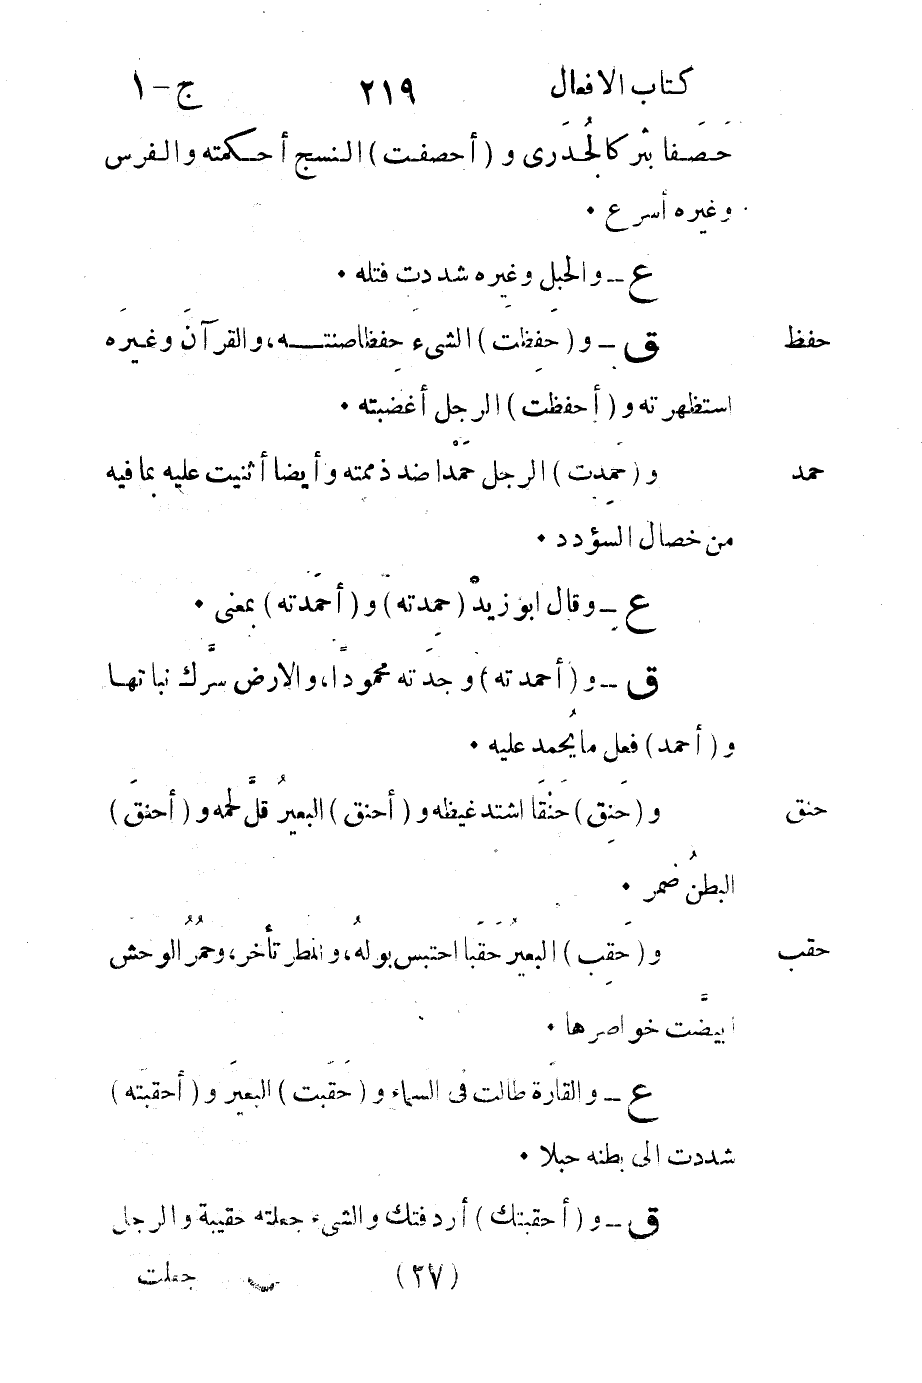 كتاب الافعال ٢١٩ ج-١
حَصَفا بثُر كالجُدَرى و (أحصفت) النسج أحكمته والفرس
وغيره أسرع •
ع – والحبل وغيره شددت فتله •
حفظ ق – و (حفِظت) الشىءَ حِفظا صنته، والقرآنَ وغيرَه
استظهرته و (أحفظت) الرجل أغضبته •
حمد و (حَمِدت) الرجل حَمْدا ضد ذممته وأيضا أثنيت عليه بما فيه
من خصال السؤدد •
ع – وقال ابو زيدْ (حمِدته) و (أحَمدته) بمعنى •
ق – و (أحمدته) وجدَته محمودًا، والارض سرَّك نباتها
و (أحمد) فعل ما يُحمد عليه •
حنق و (حَنِق) حَنَقا اشتد غيظه و (أحنق) البعيرُ قلَّ لحمه و (أحنقَ)
البطنُ ضمُر •
حقب و (حَقِب) البعيرُ حَقَبا احتبَس بولهُ، والمطر تأخر، وحمُرُ الوحش
ابيضَّت خواصرها •
ع – والقارَة طالت فى السماء و (حَقَبت) البعيرَ و (أحقبَته)
شددت الى بطنه حبلا •
ق – و (أحقبتك) أردفتك والشىء جعلته حقيبة والرجل
(٢٧) جعلت